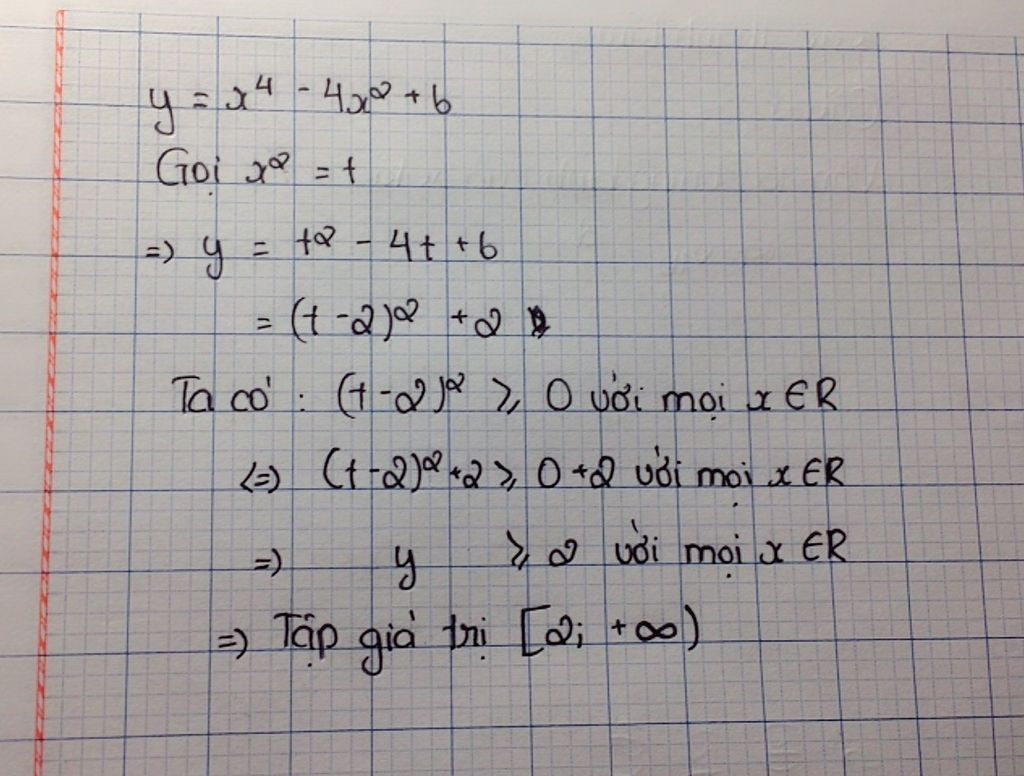 y = x⁴ - 4x² + 6
Gọi x² = t
=> y = t² - 4t + 6
= (t - 2)² + 2
Ta có : (t - 2)² ≥ 0 với mọi x ∈ R
<=> (t - 2)² + 2 ≥ 0 + 2 với mọi x ∈ R
=> y ≥ 2 với mọi x ∈ R
=> Tập giá trị [2; +∞)